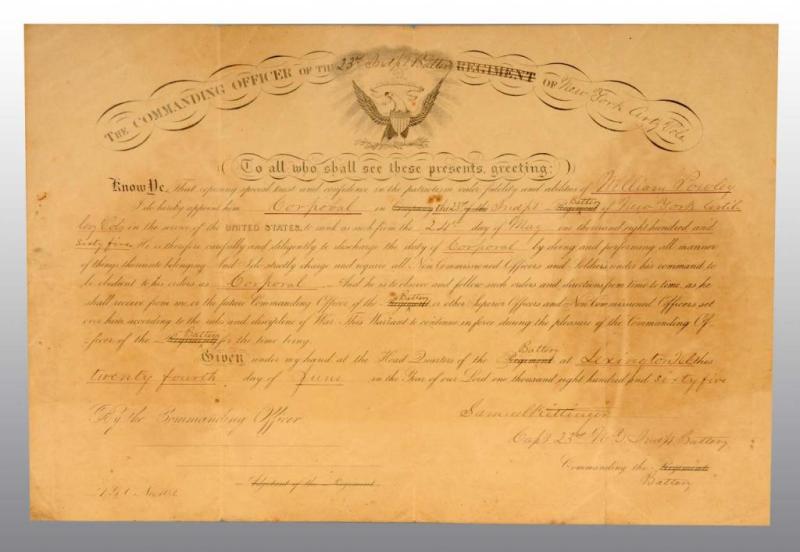 THE COMMANDING OFFICER OF THE 23rd Indpt Battery REGIMENT OF New York Arty Vols
To all who shall see these presents, greeting:
Know Ye, That reposing special trust and confidence in the patriotism valor fidelity and abilities of William Powley
I do hereby appoint him Corporal in Company the 23rd of the Indpt Battery Regiment of New York Artil
lery Vols in the service of the UNITED STATES, to rank as such from the 24th day of May one thousand eight hundred and
sixty five He is therefore carefully and diligently to discharge the duty of Corporal by doing and performing all manner
of things thereunto belonging. And I do strictly charge and require all Non Commissioned Officers and Soldiers under his command to
be obedient to his orders as Corporal And he is to observe and follow such orders and directions from time to time, as he
shall receive from me, or the future Commanding Officer of the Battery Regiment or other Superior Officers and Non Commissioned Officers set
over him according to the rules and discipline of War. This Warrant to continue in force during the pleasure of the Commanding Of-
ficer of the Battery Regiment for the time being.
Given under my hand at the Head Quarters of the Battery Regiment at Lexington this
twenty fourth day of June in the Year of our Lord one thousand eight hundred and sixty five
By the Commanding Officer
Samuel Kittinger
Capt 23rd N Y Indpt Battery
Commanding the Regiment
Battery
Adjutant of the Regiment
A.G.O. No.